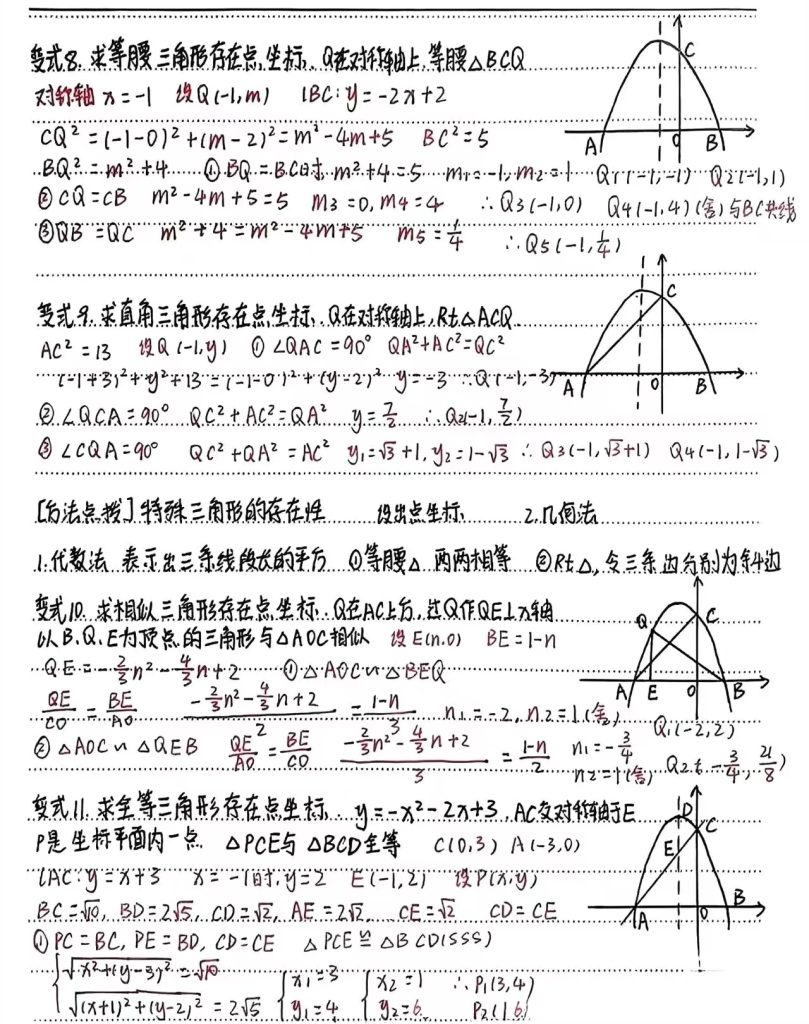 变式8. 求等腰三角形存在点坐标. Q在对称轴上, 等腰△BCQ
对称轴 x=-1 设Q(-1,m) lBC: y=-2x+2
CQ²=(-1-0)²+(m-2)²=m²-4m+5 BC²=5
BQ²=m²+4 ①BQ=BC时 m²+4=5 m₁=-1, m₂=1 Q₁(-1,-1) Q₂(-1,1)
②CQ=CB m²-4m+5=5 m₃=0, m₄=4 ∴Q₃(-1,0) Q₄(-1,4)(舍)与BC共线
③QB=QC m²+4=m²-4m+5 m₅=1/4 ∴Q₅(-1,1/4)
A O B C
变式9. 求直角三角形存在点坐标. Q在对称轴上, Rt△ACQ
AC²=13 设Q(-1,y) ①∠QAC=90° QA²+AC²=QC²
(-1+3)²+y²+13=(-1-0)²+(y-2)² y=-3 ∴Q(-1,-3)
②∠QCA=90° QC²+AC²=QA² y=7/2 ∴Q₂(-1,7/2)
③∠CQA=90° QC²+QA²=AC² y₁=√3+1, y₂=1-√3 ∴Q₃(-1,√3+1) Q₄(-1,1-√3)
A O B C
[方法点拨]特殊三角形的存在性 设出点坐标 2.几何法
1.代数法 表示出三条线段长的平方 ①等腰△ 两两相等 ②Rt△, 令三条边分别为斜边
变式10. 求相似三角形存在点坐标. Q在AC上方, 过Q作QE⊥x轴
以B、Q、E为顶点的三角形与△AOC相似 设E(n,0) BE=1-n
QE=-2/3n²-4/3n+2 ①△AOC∽△BEQ
QE/CO=BE/AO (-2/3n²-4/3n+2)/ =(1-n)/3 n₁=-2, n₂=1(舍) Q₁(-2,2)
②△AOC∽△QEB QE/AO 2 =BE/CO (-2/3n²-4/3n+2)/3=(1-n)/2 n₁=-3/4 n₂=1(舍) Q₂(-3/4,21/8)
Q C A E O B
变式11. 求全等三角形存在点坐标. y=-x²-2x+3, AC交对称轴于E
P是坐标平面内一点 △PCE与△BCD全等 C(0,3) A(-3,0)
lAC: y=x+3 x=-1时, y=2 E(-1,2) 设P(x,y)
BC=√10, BD=2√5, CD=√2, AE=2√2 CE=√2 CD=CE
①PC=BC, PE=BD, CD=CE △PCE≌△BCD(SSS)
{√x²+(y-3)²=√10
√(x+1)²+(y-2)²=2√5 {x₁=3 y₁=4 {x₂=1 y₂=6 ∴P₁(3,4) P₂(1,6)
D C E A O B